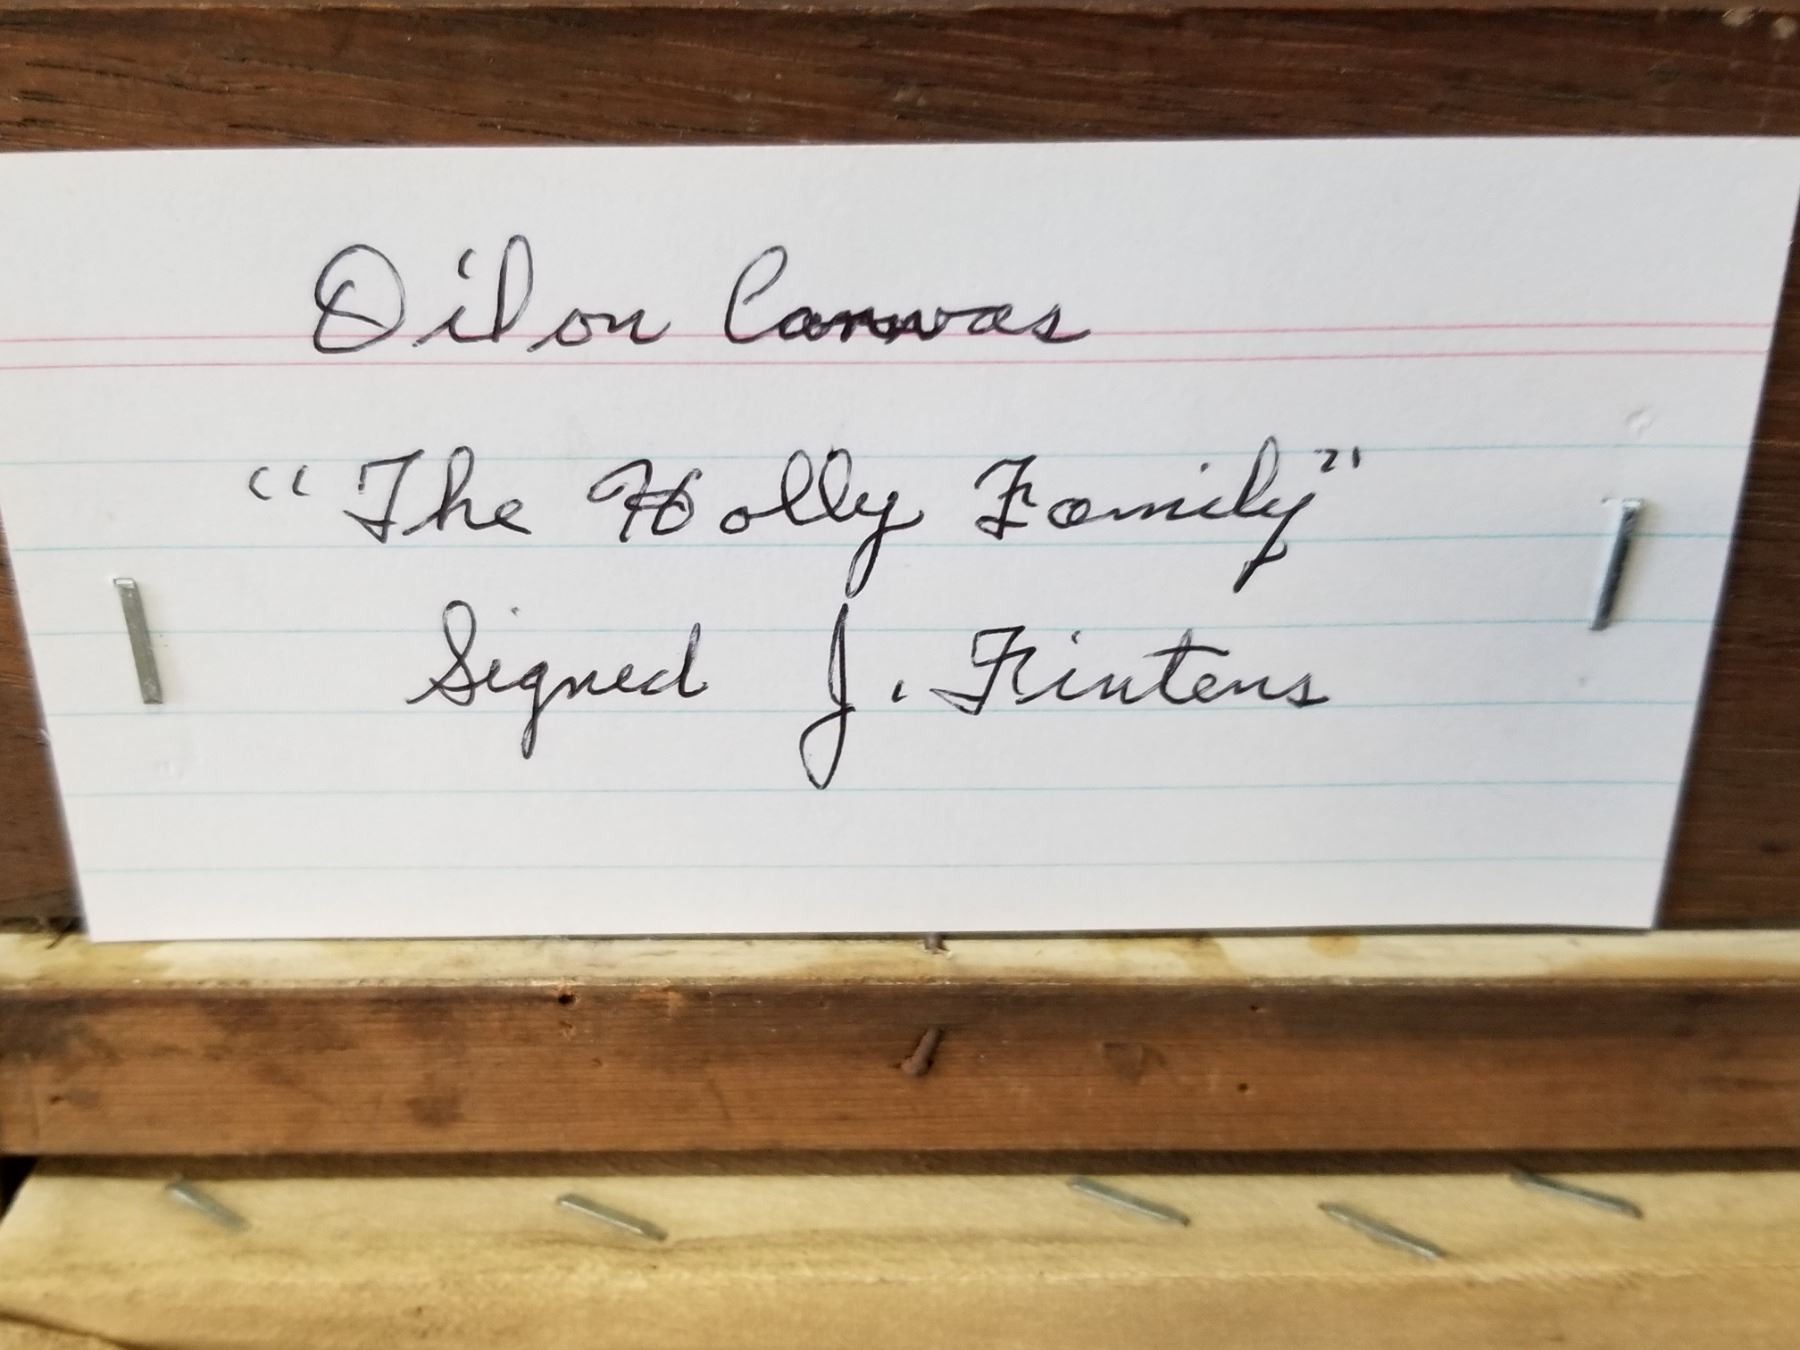 Oil on Canvas
"The Holly Family"
Signed J. Fintens